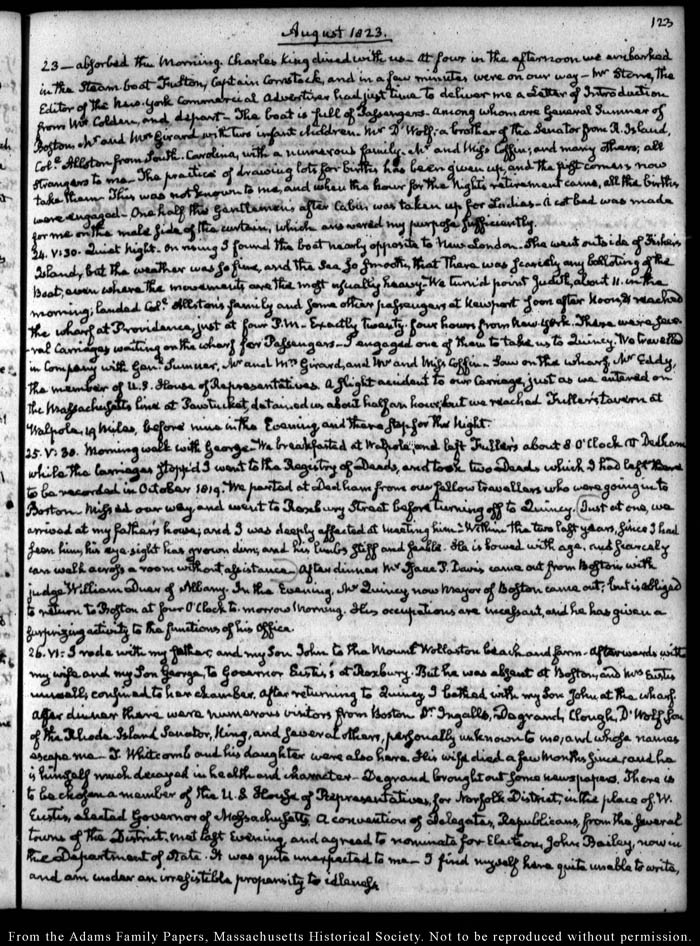 123
August 1823.
23 — absorbed the Morning. Charles King dined with us — At four in the afternoon we embarked
in the Steam-boat Fulton, Captain Comstock, and in a few minutes were on our way — Mr Stone, the
Editor of the New-York Commercial Advertiser had just time to deliver me a Letter of Introduction
from Mr Colden, and depart — The boat is full of Passengers. Among whom are General Sumner of
Boston, Mr and Mrs Girard, with two infant children. Mr D'Wolf, a brother of the Senator from R. Island,
Col.e Allston from South-Carolina, with a numerous family. Mr and Miss Coffin; and many others; all
strangers to me. The practice of drawing lots for births has been given up, and the first comers now
take them. This was not known to me, and when the hour for the Night's retirement came, all the births
were engaged — One half the Gentlemen's after Cabin was taken up for Ladies — A cot bed was made
for me on the male side of the curtain, which answered my purpose sufficiently.
24. V:30. Quiet Night. On rising I found the boat nearly opposite to New-London. She went outside of Fisher's
Island, but the weather was so fine, and the Sea so smooth, that there was scarcely any rolling of the
Boat, even where the movements are the most usually heavy — We turn'd point Judith, about 11. in the
morning; landed Col.e Allston's family and some other passengers at Newport soon after Noon, & reached
the wharf at Providence, just at four P.M. — Exactly twenty-four hours from New-York. There were seve-
-ral Carriages waiting on the wharf for Passengers — I engaged one of them to take us to Quincy. We travelled
in Company with Gen.l Sumner, Mr and Mrs Girard, and Mr and Miss Coffin — Saw on the wharf, Mr Eddy,
the member of U.S. House of Representatives. A slight accident to our Carriage, just as we entered on
the Massachusetts line at Pawtucket, detained us about half an hour, but we reached Fuller's tavern at
Walpole, 19 Miles, before nine in the Evening and there stop for the Night.
25. V:30. Morning walk with George. We breakfasted at Walpole, and left Fuller's about 8 O'Clock. At Dedham
while the carriages stopp'd I went to the Registry of Deeds, and took two Deeds which I had left there
to be recorded in October 1819. We parted at Dedham from our fellow travellers who were going in to
Boston. Miss'd our way and went to Roxbury Street before turning off to Quincy. Just at one, we
arrived at my father's house; and I was deeply affected at meeting him. Within the two last years, since I had
seen him, his eye-sight has grown dim; and his limbs stiff and feeble. He is bowed with age, and scarcely
can walk across a room without assistance. After dinner Mr Isaac P. Davis came out from Boston with
Judge William Duer of Albany. In the Evening, Mr Quincy now Mayor of Boston came out; but is obliged
to return to Boston at four O'Clock to-morrow Morning. His occupations are incessant, and he has given a
surprizing activity to the functions of his Office.
26. VI: I rode with my father, and my Son John to the Mount Wollaston beach and farm — Afterwards with
my wife and my Son George, to Governor Eustis's at Roxbury. But he was absent at Boston, and Mrs Eustis
unwell, confined to her chamber. After returning to Quincy I bathed with my Son John at the wharf
After dinner there were numerous visitors from Boston Dr. Ingalls, Degrand, Clough, D'Wolf, Son
of the Rhode Island Senator, King, and several others, personally unknown to me, and whose names
escape me — T. Whitcomb and his daughter were also here. His wife died a few Months since, and he
is himself much decayed in health and character — Degrand brought out some newspapers. There is
to be chosen a member of the U.S. House of Representatives, for Norfolk District, in the place of W.
Eustis, elected Governor of Massachusetts. A convention of Delegates, Republicans, from the several
towns of the District, met last Evening and agreed to nominate for Election, John Bailey, now in
the Department of State. It was quite unexpected to me — I find myself here quite unable to write,
and am under an irresistible propensity to idleness.
From the Adams Family Papers, Massachusetts Historical Society. Not to be reproduced without permission.